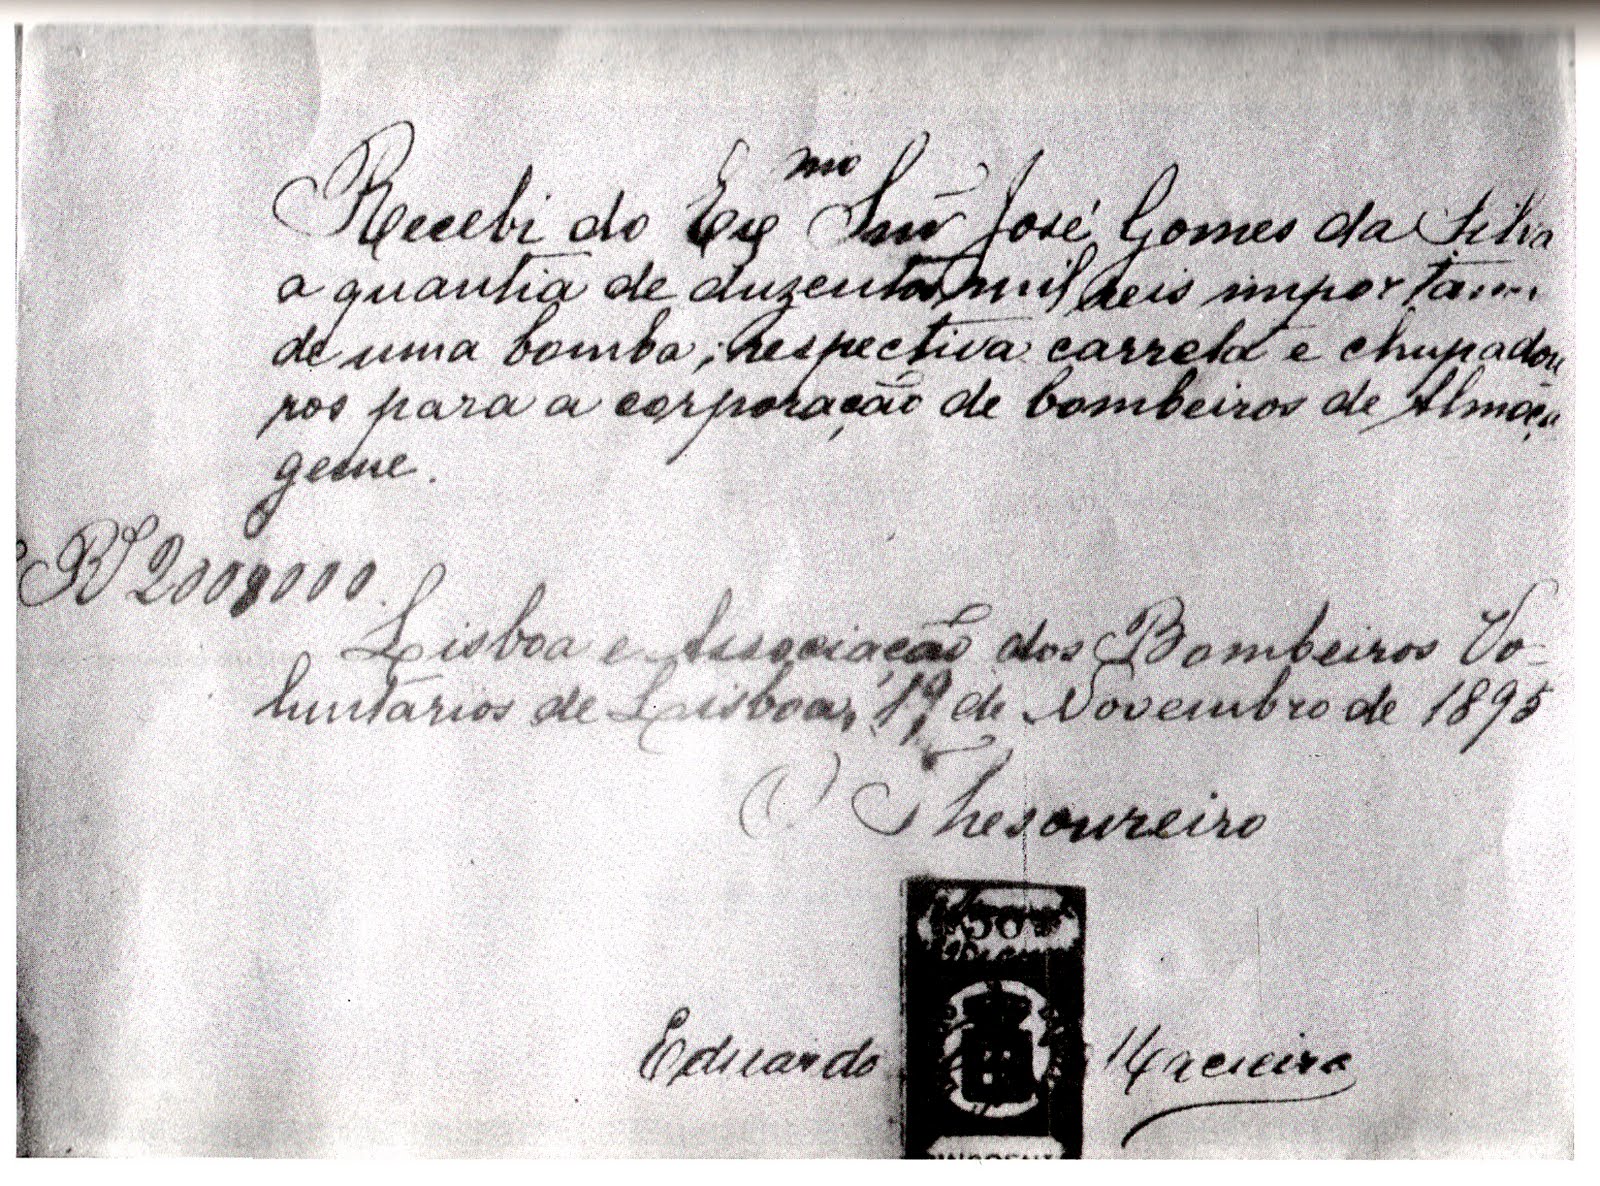 Recebi do Ex<sup>mo</sup> Snr José Gomes da Silva
a quantia de duzentos mil reis
de uma bomba, respectiva carreta e chupadou
ros para a corporação de bombeiros de Almoça
geme.
RS 200$000.
Lisboa e Associação dos Bombeiros Vo-
luntarios de Lisboa, 19 de Novembro de 1895
O Thesoureiro
50
Eduardo Macieira